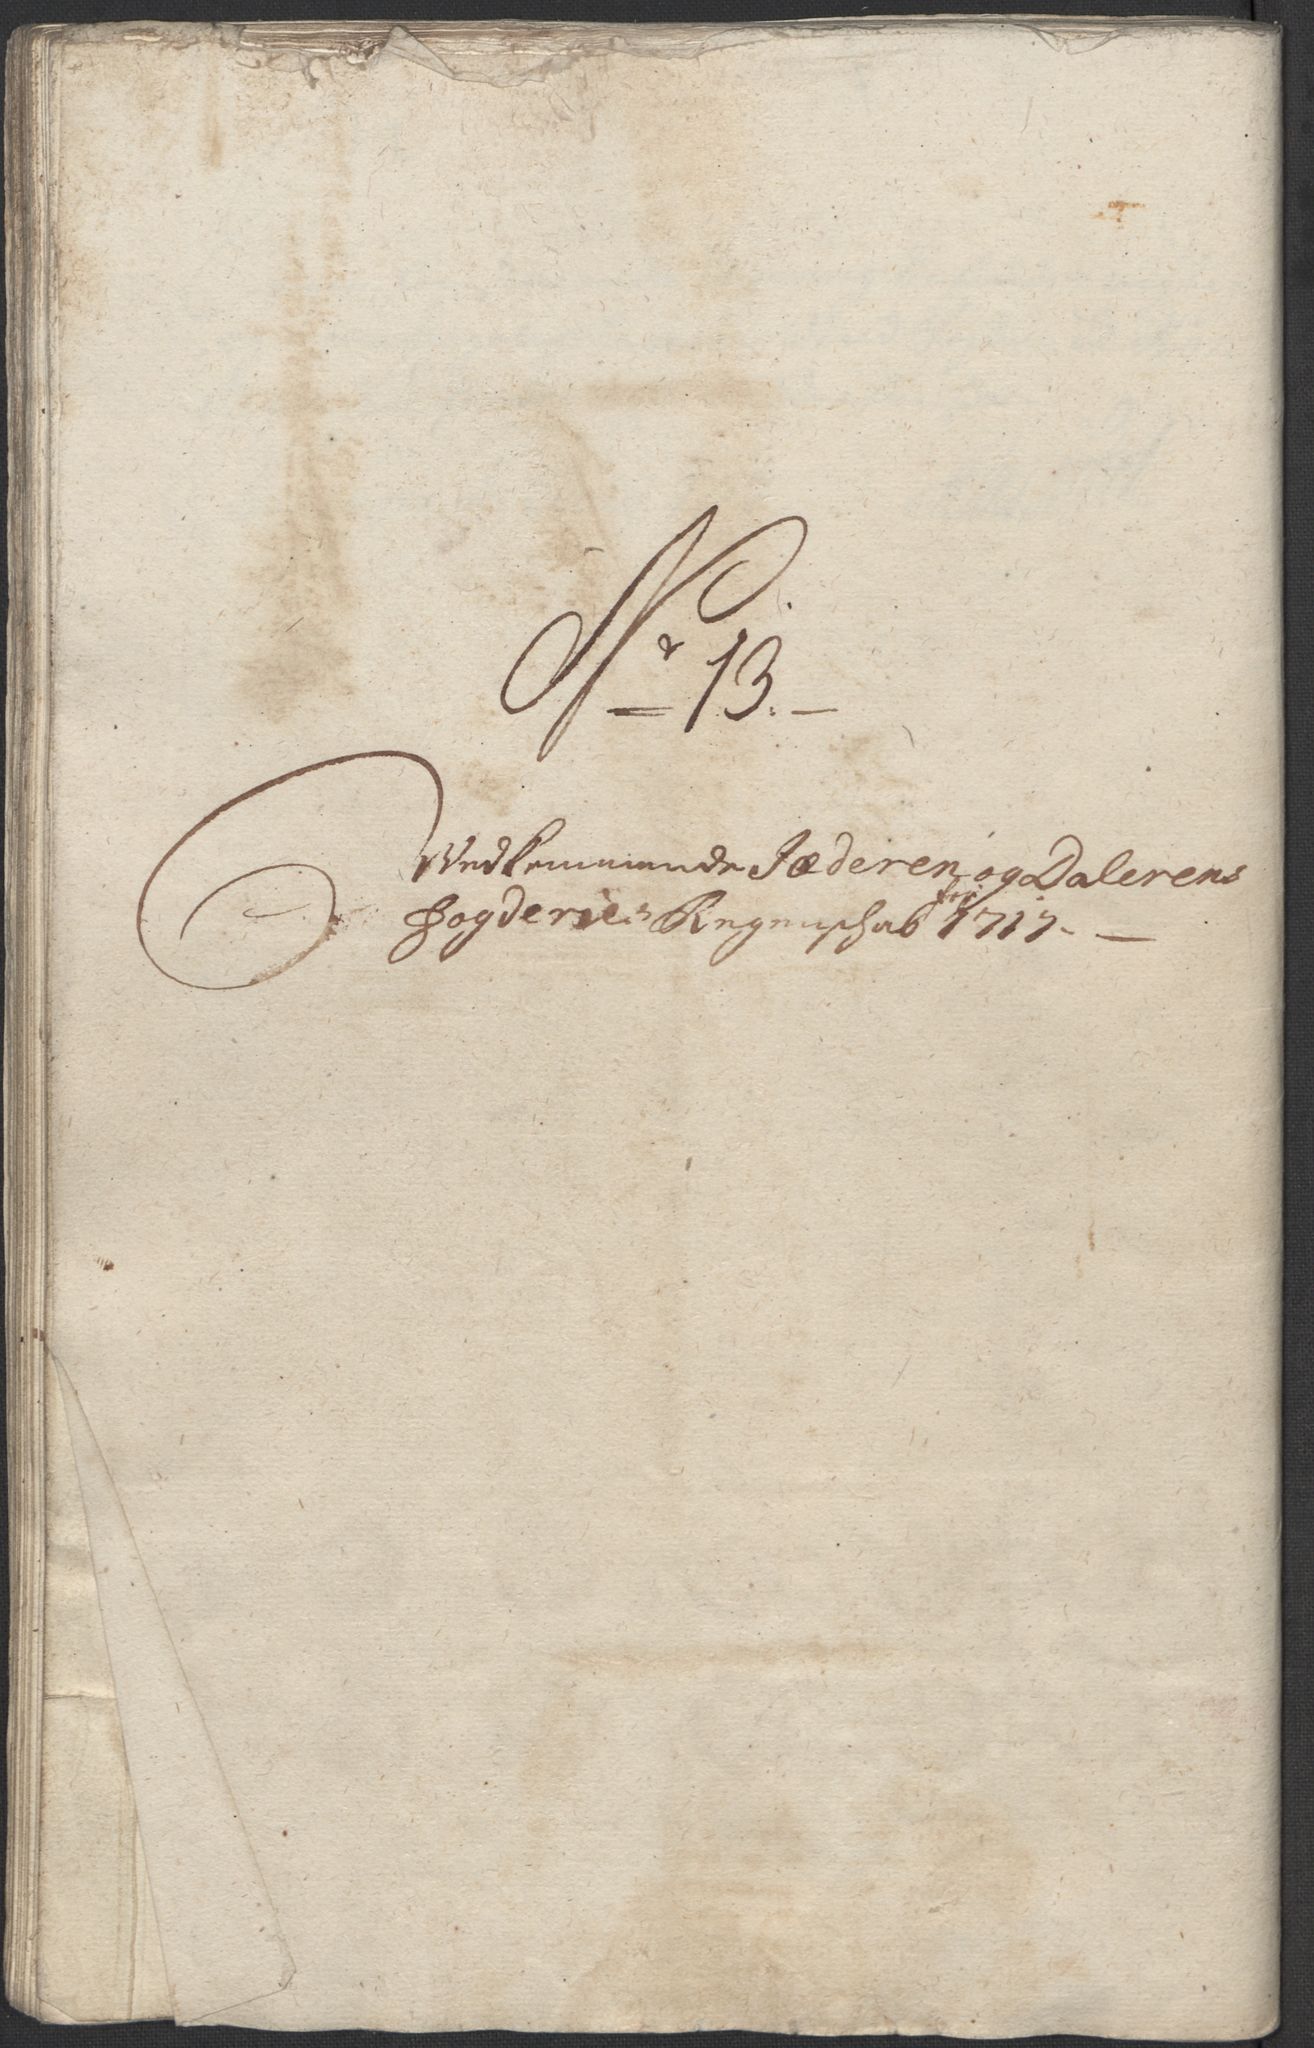 Nr 13.
Vedkommende Jæderen og Dalerens
fogderies Regenschab for 1717